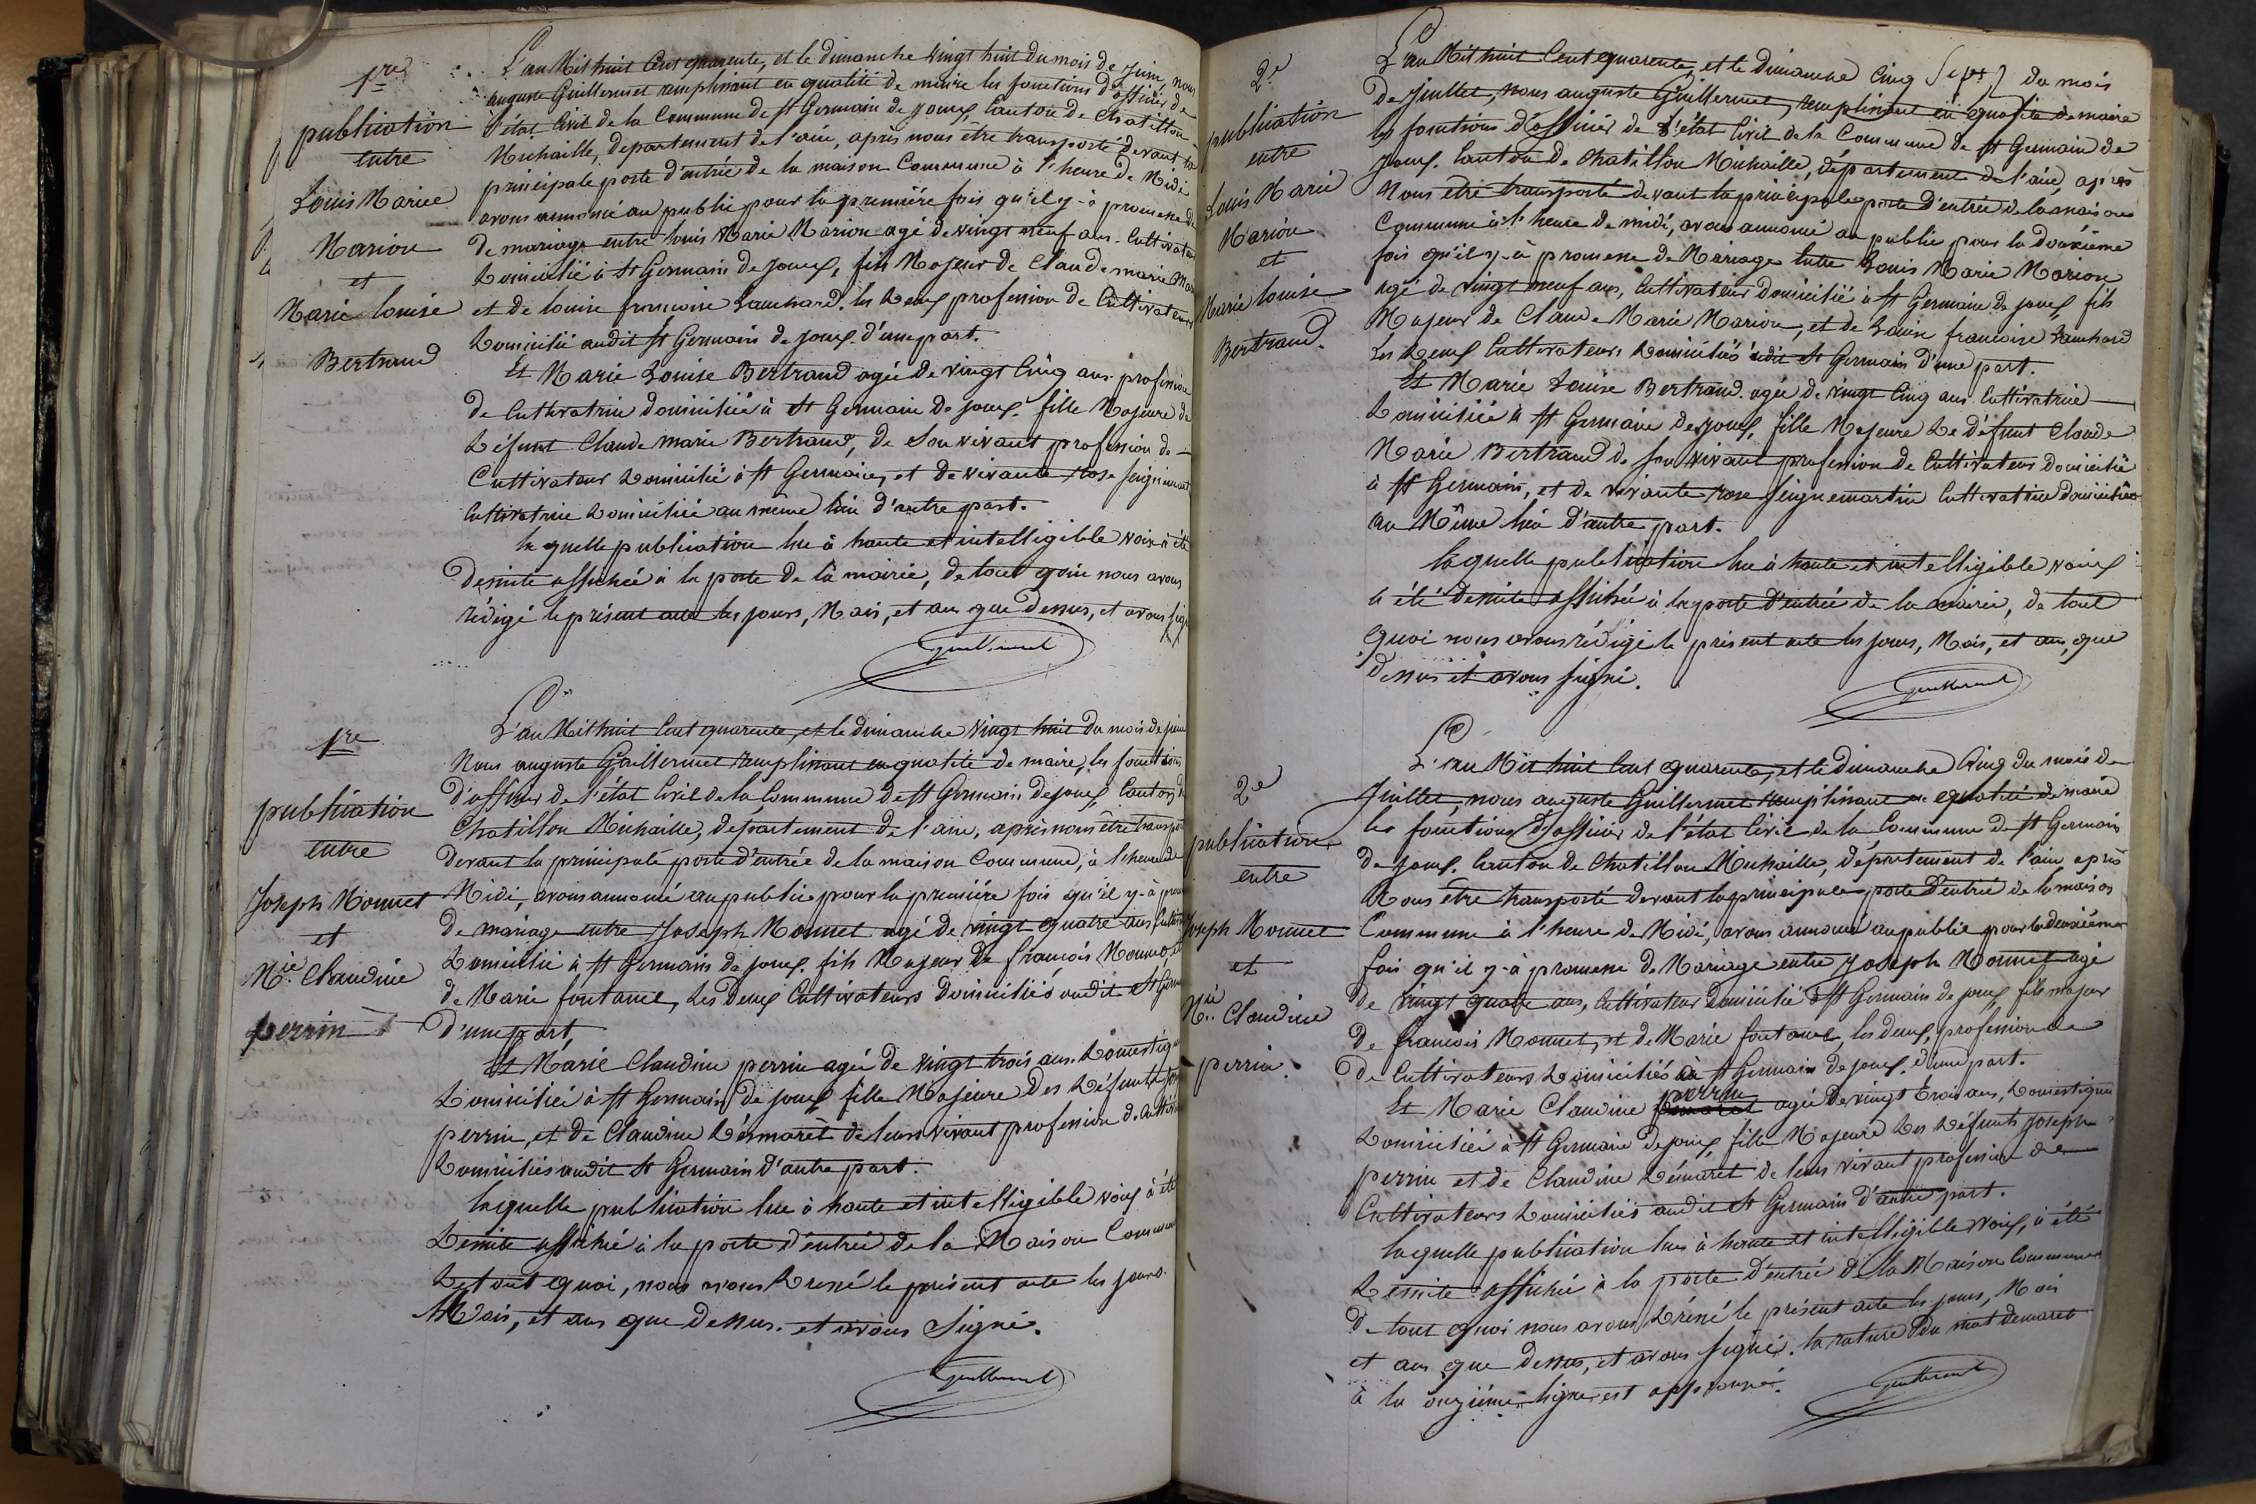 1re
publication
entre
Louis Marie
Marion
et
Marie Louise
Bertrand
L'an Mil huit Cent quarente, et le dimanche vingt huit du mois de juin, nous
auguste Guillermet remplissant en qualité de maire les fonctions d'officier de
l'état Civil de la Commune de st Germain de joux, Canton de Chatillon
Michaille, departement de l'ain, après nous être transporté devant la
principale porte d'entrée de la maison Commune à l'heure de Midi
avons annoncé au public pour la première fois qu'il y-à promesse de
de mariage entre louis Marie Marion agé de vingt neuf ans. Cultivateur
Domicilié à St Germain de joux, fils Majeur de Claude marie Mar
et de louise francoise Lauchard. les Deux profession de Cultivateurs
Domicilié audit St Germain de joux. d'une part.
Et Marie Louise Bertrand agée de vingt Cinq ans. profession
de Cultivatrice domiciliée à St Germain de joux. fille Majeure de
Défunt Claude marie Bertrand, de Son vivant profession de
Cultivateur Domicilié à St Germain, et de vivante rose
Cultivatrice Domiciliée au même lieu d'autre part.
la quelle publication lue à haute et intelligible voix à été
desuite affichée à la porte de la mairie, de tout quoi nous avons
rédigé le présent acte les jours, Mois, et an que dessus, et avons
Guillermet
1re
publication
entre
Joseph Monnet
et
Mie Claudine
perrin
L'an Mil huit Cent quarente, et le dimanche vingt huit du mois de juin
Nous auguste Guillermet remplissant en qualité de maire, les fonctions
d'officier de l'état Civil de la Commune de St Germain de joux, Canton de
Chatillon Michaille, departement de l'ain, après nous être transporté
devant la principale porte d'entrée de la maison Commune, à l'heure de
Midi, avons annoncé au public pour la première fois qu'il y-à prom
de mariage entre Joseph Monnet agé de vingt quatre ans Cultiv
Domicilié à St Germain de joux. fils Majeur de francois Monnet et
de Marie fontanel, les Deux Cultivateurs Domiciliés audit St Germ
d'une part,
Et Marie Claudine perrin agée de vingt trois ans. Domestique
Domiciliée à St Germain de joux fille Majeure des Défunts
perrin, et de Claudine Démarèt de leurs vivant profession de
Domiciliés audit St Germain d'autre part.
laquelle publication lue à haute et intelligible voix à été
Desuite affiché à la porte d'entrée de la Maison Commune
De tout quoi, nous avons Dréssé le présent acte les jours.
Mois, et an que Dessus. et avons Signé.
Guillermet
2e
publication
entre
Louis Marie
Marion
et
Marie louise
Bertrand.
L'an Mil huit Cent quarente, et le dimanche Cinq du mois
De Juillet, nous auguste Guillermet, remplissant en qualité de maire
les fonctions d'officier de l'état Civil de la Commune de St Germain de
joux. Canton de Chatillon Michaille, département de l'ain, après
Nous être transporté devant la principale porte d'entrée de la maison
Commune à l'heure de midi, avons annoncé au public pour la douxième
fois qu'il y-à promesse de Mariage Entre Louis Marie Marion
agé de vingt neuf ans, Cultivateur domicilié à St Germain de joux fils
Majeur de Claude Marie Marion, et de Louise francoise Lauchard
les Deux Cultivateurs Domiciliés audit St Germain d'une part.
Et Marie Louise Bertrand. agée de vingt Cinq ans Cultivatrice
Domiciliée à St Germain de joux, fille Majeure de défunt Claude
Marie Bertrand de son vivant profession de Cultivateur domicilié
à St Germain, et de vivante rose Seignemartin Cultivatrice domiciliée
au Même lieu d'autre part.
laquelle publication lue à haute et intelligible voix
à été desuite affichée à la porte d'entrée de la mairie, de tout
quoi nous avons rédigé le présent acte les jours, Mois, et an, que
dessus et avons signé.
Guillermet
2e
publication
entre
Joseph Monnet
et
Mie Claudine
perrin.
L'an Mil huit Cent quarente, et le dimanche Cinq du mois de
Juillet, nous auguste Guillermet remplissant en qualité de maire
les fonctions d'officier de l'état Civil de la Commune de St Germain
de joux. Canton de Chatillon Michaille, département de l'ain, après
Nous être transporté devant la principale porte d'entrée de la maison
Commune à l'heure de Midi, avons annoncé au public pour la deuxième
fois qu'il y-à promesse de Mariage entre Joseph Monnet agé
de vingt quatre ans, Cultivateur Domicilié à St Germain de joux fils majeur
de francois Monnet, et de Marie fontanel, les deux, profession de
de Cultivateurs Domiciliés à St Germain de joux. d'une part.
Et Marie Claudine perrin agée de vingt trois ans, Domestique
Domiciliée à St Germain de joux, fille Majeure des Défunts joseph
perrin et de Claudine Démarèt de leurs vivant profession de
Cultivateurs Domiciliés audit St Germain d'autre part.
laquelle publication lue à haute et intelligible voix, à été
Desuite affiché à la porte d'entrée de la Maison Commune
De tout quoi nous avons Dréssé le présent acte les jours, Mois
et an que dessus, et avons signé. la rature du mot demaret
à la onzième ligne est approuvé.
Guillermet